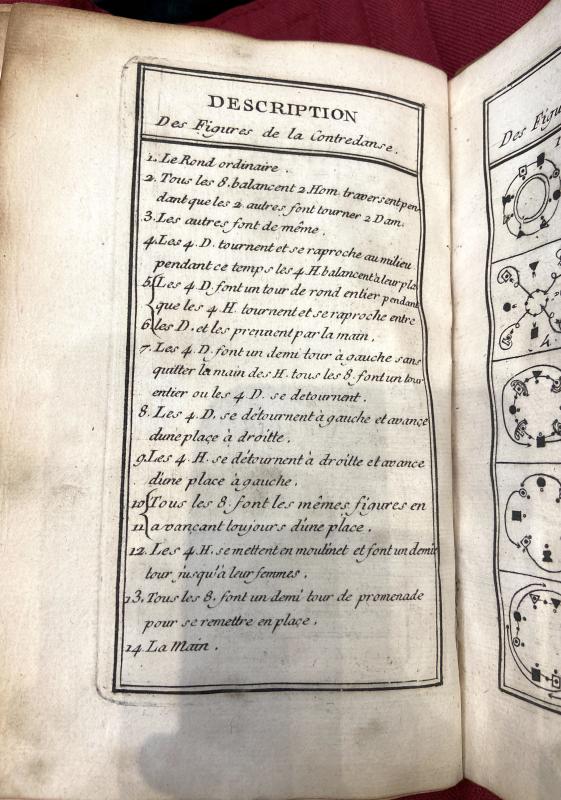 DESCRIPTION
Des Figures de la Contredanse.
1. Le Rond ordinaire.
2. Tous les 8. balancent 2 Hom. traversent pen-
dant que les 2 autres font tourner 2 Dam.
3. Les autres font de même.
4. Les 4. D. tournent et se raproche au milieu
pendant ce temps les 4 H. balancent à leur pla
5 Les 4 D. font un tour de rond entier pendant
que les 4 H. tournent et se raproche entre
6 les D. et les prennent par la main.
7. Les 4. D. font un demi tour à gauche sans
quitter la main des H. tous les 8. font un tour
entier ou les 4 D. se detournent.
8. Les 4. D. se détournent à gauche et avance
dune plaçe à droitte.
9. Les 4. H. se détournent à droitte et avance
d'une plaçe à gauche.
10 Tous les 8. font les mêmes figures en
11 avançant toujours d'une plaçe.
12. Les 4. H. se mettent en moulinet et font un demie
tour jusqu'à leur femmes.
13. Tous les 8. font un demi tour de promenade
pour se remettre en plaçe.
14. La Main.
Des Figu
1
4